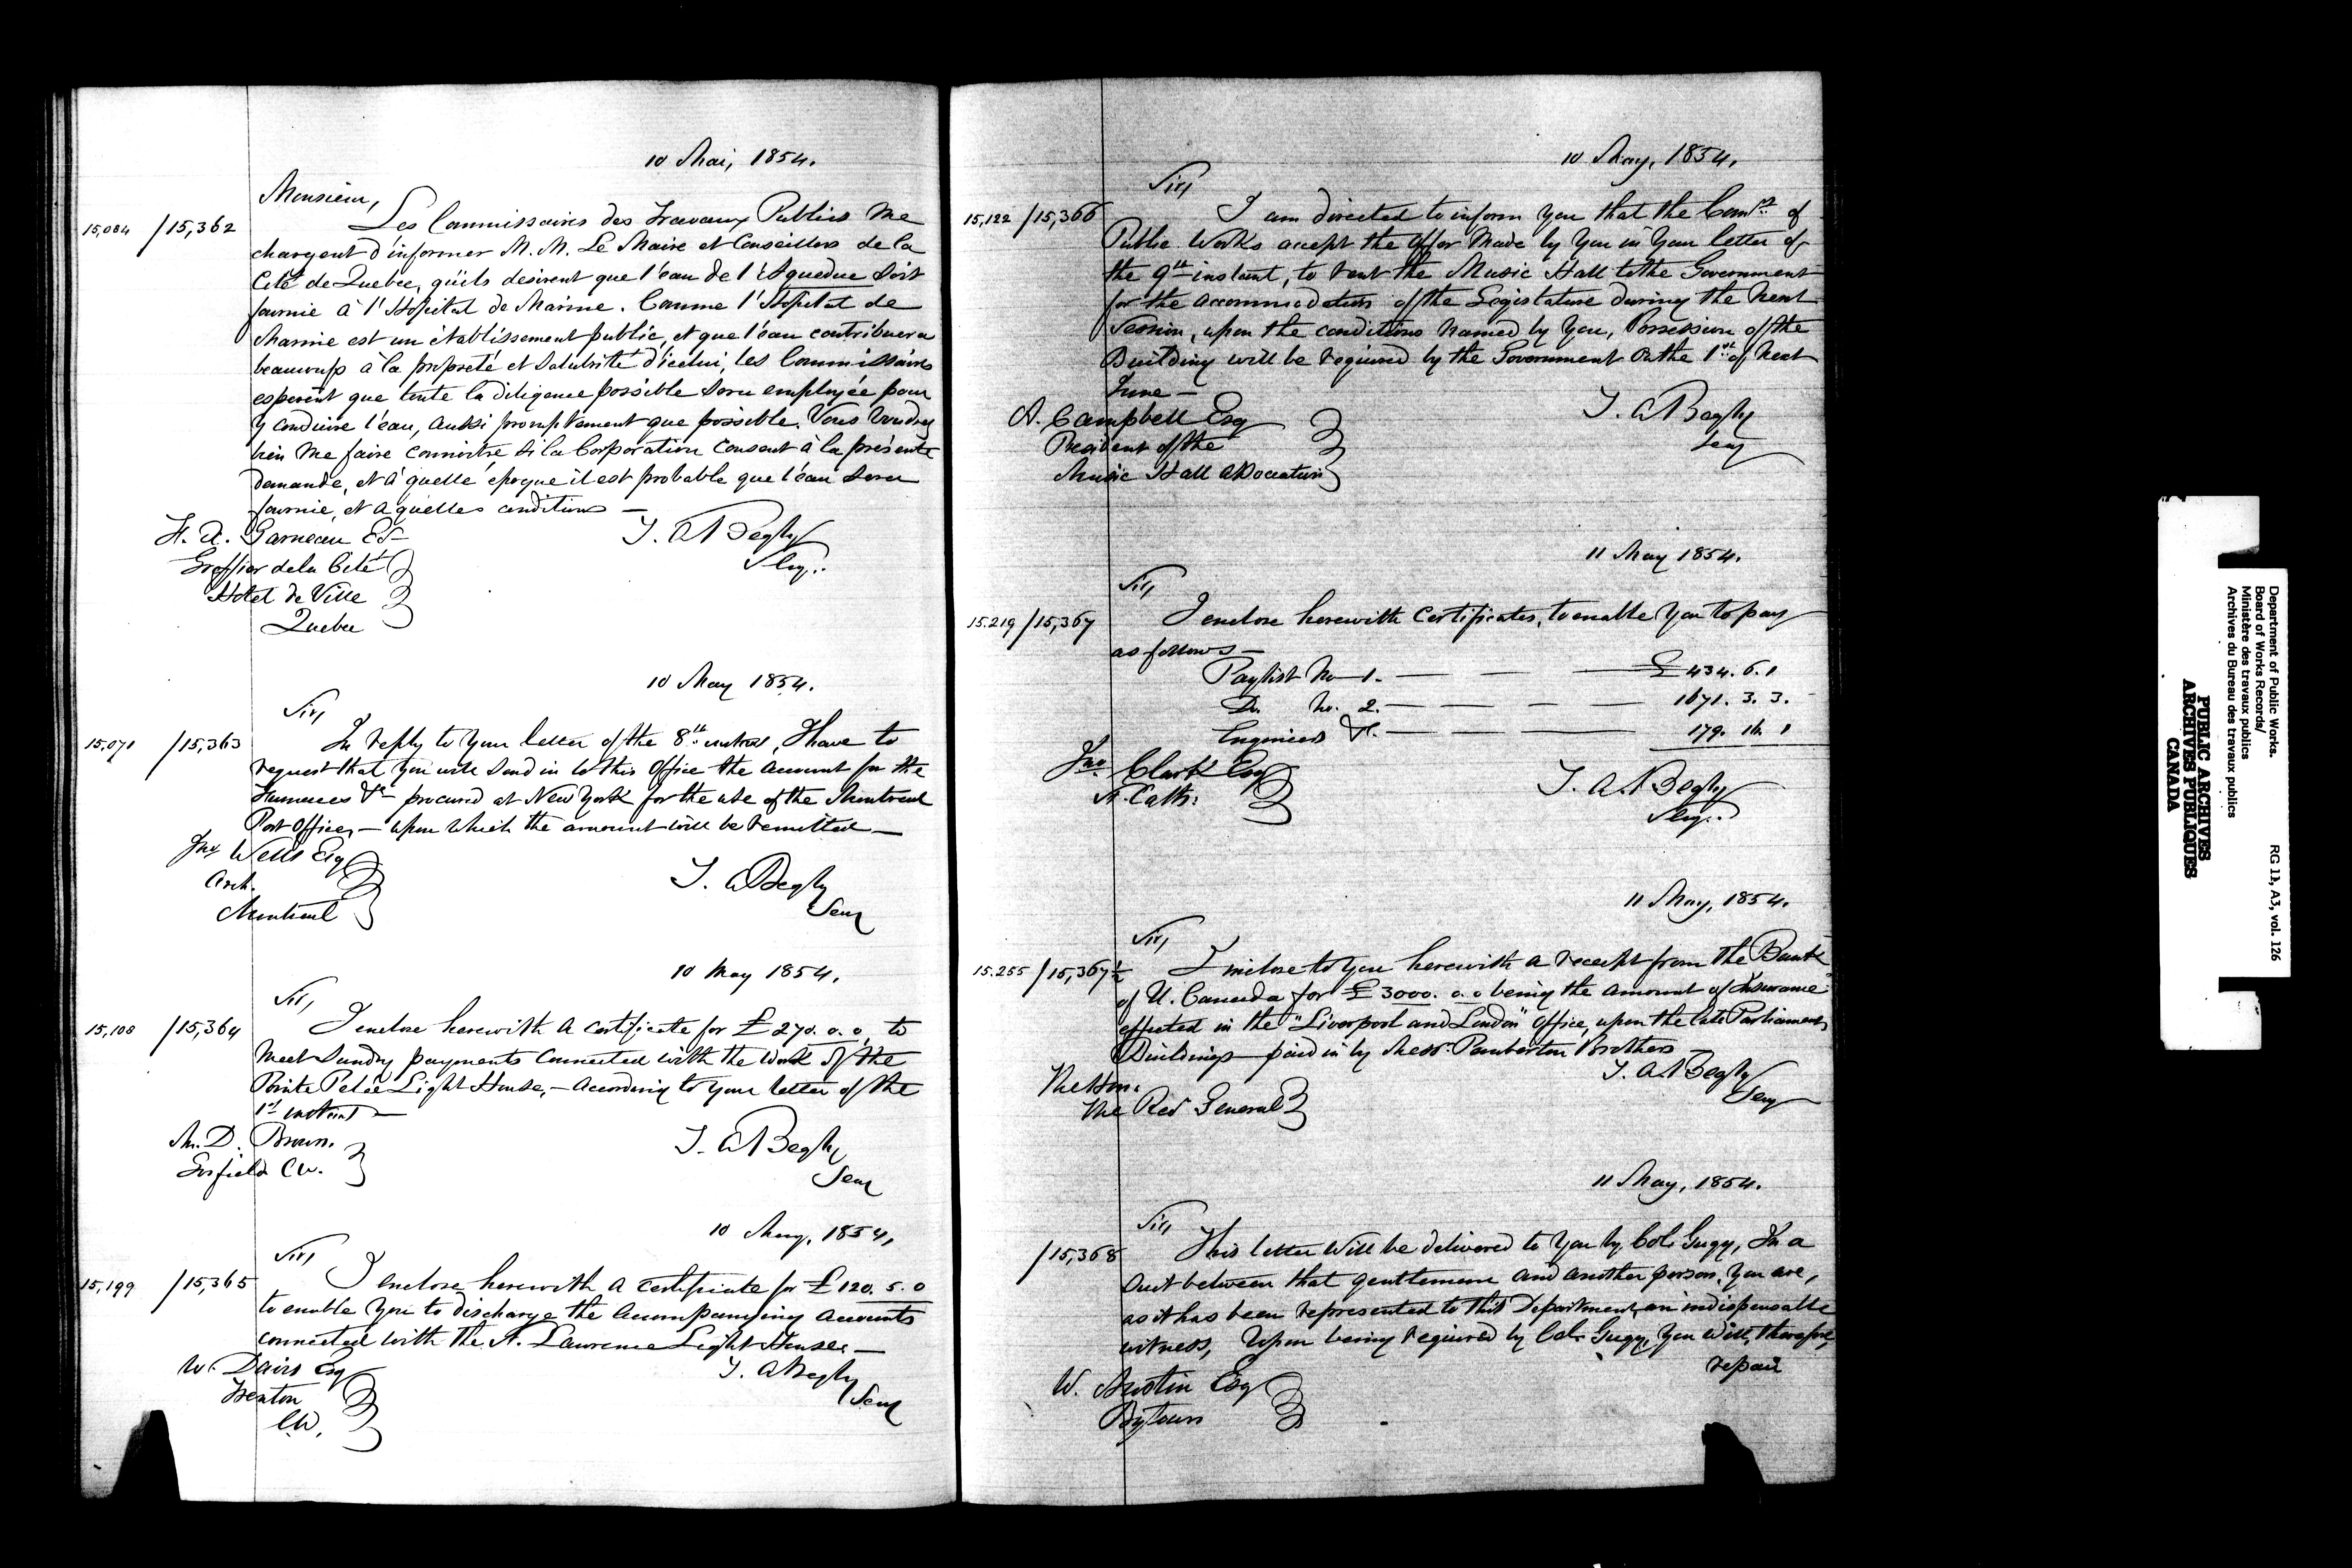 10 Mai, 1854.
Monsieur,
15,084 /15,362 Les Commissaires des Travaux Publics me
chargent d'informer M. M. Le Maire et Conseillers de la
Cité de Quebec, qu'ils desirent que l'eau de l'Aqueduc soit
fournie à l'Hopital de Marine. Comme l'Hopital de
Marine est un établissement public, et que l'eau contribuera
beaucoup à la propreté et salubrité d'icelui, les Commissaires
esperent que toute la diligence possible sera employée pour
y conduire l'eau, aussi promptement que possible. Vous voudrez
bien me faire connoitre, si la Corporation consent à la présente
demande, et à quelle époque il est probable que l'eau sera
fournie, et a quelles conditions —
F. A. Garneau Er
Greffier de la Cité
Hotel de Ville
Quebec
T. A Begly
Secy.
10 May 1854.
Sir,
15,071 /15,363 In reply to your letter of the 8th instant, I have to
request that you will send in to this Office the account for the
Furnaces &c procured at New York for the use of the Montreal
Post Office, — upon which the amount will be remitted —
Jno Wells Esq
Arch.
Montreal
T. A Begly
Secy
10 May 1854.
Sir,
15,108 /15,364 I enclose herewith a certificate for £270. 0. 0, to
meet sundry payments connected with the work of the
Pointe Pelée Light House, — according to your letter of the
1st instant —
Mr. D. Brown.
Gosfield C.W.
T. A Begly
Secy
10 May, 1854,
Sir,
15,199 /15,365 I enclose herewith a certificate for £120. 5. 0
to enable you to discharge the accompanying accounts
connected with the St. Lawrence Light Houses —
W. Davis Esq
Trenton
C.W.
T. A Begly
Secy
10 May, 1854,
Sir,
15,122 /15,366 I am directed to inform you that the Comrs. of
Public Works accept the offer made by you in your letter of
the 9th instant, to rent the Music Hall to the Government
for the accommodation of the Legislature during the next
Session, upon the conditions named by you, Possession of the
Building will be required by the Government on the 1st of next
June —
A. Campbell Esq
President of the
Music Hall Association
T. A Begly
Secy
11 May 1854.
Sir,
15.219 /15,367 I enclose herewith Certificates, to enable you to pay
as follows —
Paylist No 1. — £434. 6. 1
Do. No. 2. — 1671. 3. 3.
Engineers &c. — 179. 16. 1
Jno. Clark Esq
St. Caths.
T. A. Begly
Secy.
11 May, 1854.
Sir,
15.255 /15,367½ I inclose to you herewith a receipt from the Bank
of U. Canada for £3000. 0. 0 being the amount of Insurance
effected in the "Liverpool and London" Office, upon the late Parliament
Buildings — paid in by Messr. Pemberton Brothers —
The Hon.
The Recr General
T. A Begly
Secy
11 May, 1854.
Sir,
/15,368 This letter will be delivered to you by Col. Gugy, In a
suit between that gentleman and another person, you are,
as it has been represented to this Department, an indispensable
witness, Upon being required by Col. Gugy, you will, therefore,
repair
W. Austin Esq
Bytown
Department of Public Works.
Board of Works Records/
Ministère des travaux publics
Archives du Bureau des travaux publics
RG 11, A3, vol. 126
PUBLIC ARCHIVES
ARCHIVES PUBLIQUES
CANADA